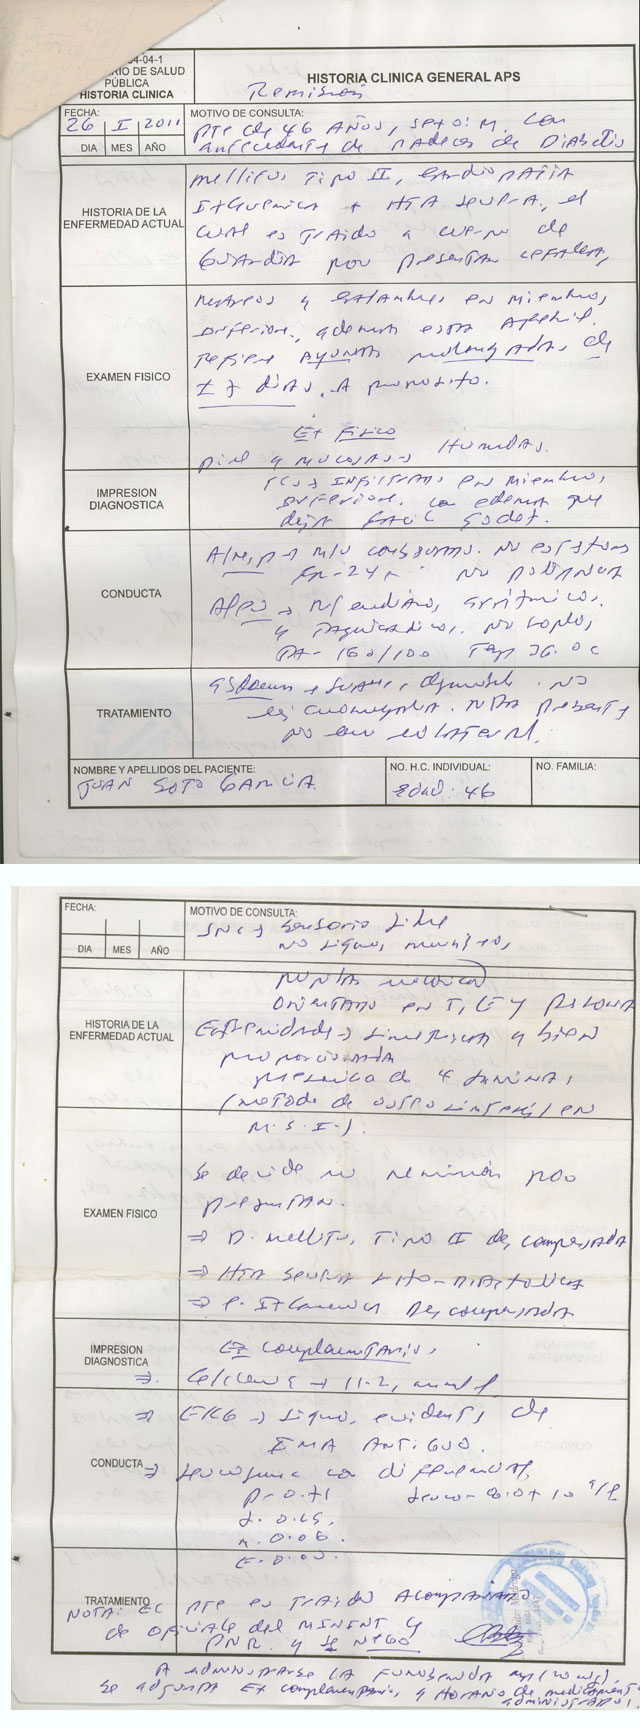 04-04-1
RIO DE SALUD
PÚBLICA
HISTORIA CLINICA
HISTORIA CLINICA GENERAL APS
Remisión
FECHA:
26 I 2011
DIA MES AÑO
MOTIVO DE CONSULTA:
Pte de 46 AÑOS, sexo: M. con
antecedente de PADECER de DIABETIS
HISTORIA DE LA
ENFERMEDAD ACTUAL
Mellitus Tipo II, CARDIOPATIA
ISQUEMICA + HTA SEVERA, el
CUAL es TRAIDO a cuerpo de
GUARDIA por presentar CEFALEA,
EXAMEN FISICO
y CALAMBRES en miembros
inferiores, además esta
Refiere AYUNAS prolongadas de
17 dias. A proposito.
Ex Fisico
piel y mucosas Humedas.
IMPRESION
DIAGNOSTICA
TCS INFILTRADO en miembros
inferiores. con edema que
deja FACIL Godet.
CONDUCTA
A/resp M/V conservado. No estertores
FR-24 x' No polipnea
A/CV R/cardiacos, arritmicos,
y TAQUICARDICOS. No soplos,
TA- 160/100 Temp 36.0c
TRATAMIENTO
Abdomen suave, depresible. No
No
NOMBRE Y APELLIDOS DEL PACIENTE:
JUAN SOTO GARCIA
NO. H.C. INDIVIDUAL:
EDAD: 46
NO. FAMILIA:
FECHA:
DIA MES AÑO
MOTIVO DE CONSULTA:
SNC Sensorio Libre
No signos meningeos,
HISTORIA DE LA
ENFERMEDAD ACTUAL
ORIENTADO en T, E y PERSONA
Extremidades simetricas y bien
proporcionada
presencia de 4 laminas
(metodo de osteosintesis) en
M.S.I.).
EXAMEN FISICO
Se decide su remision por
presentar.
⇒ D. Mellitus Tipo II descompensada
⇒ HTA SEVERA sisto-DIASTOLICA
⇒ C. Isquemica Descompensada
IMPRESION
DIAGNOSTICA
Ex complementarios
⇒ Glicemia → 11.2, mmol/l
CONDUCTA
⇒ EKG → signos evidentes de
IMA ANTIGUO.
⇒ Leucograma con diferencial,
P- 0.71
L. 0.25,
M. 0.06.
TRATAMIENTO
NOTA: EL pte es TRAIDO Acompañado
de oficiales del MININT y
PNR. y se NEGO
A administrarse LA FUROSEMIDA amp (20 mg).
Se adjunta Ex complementario, y HORARIO de medicamentos
administrados.